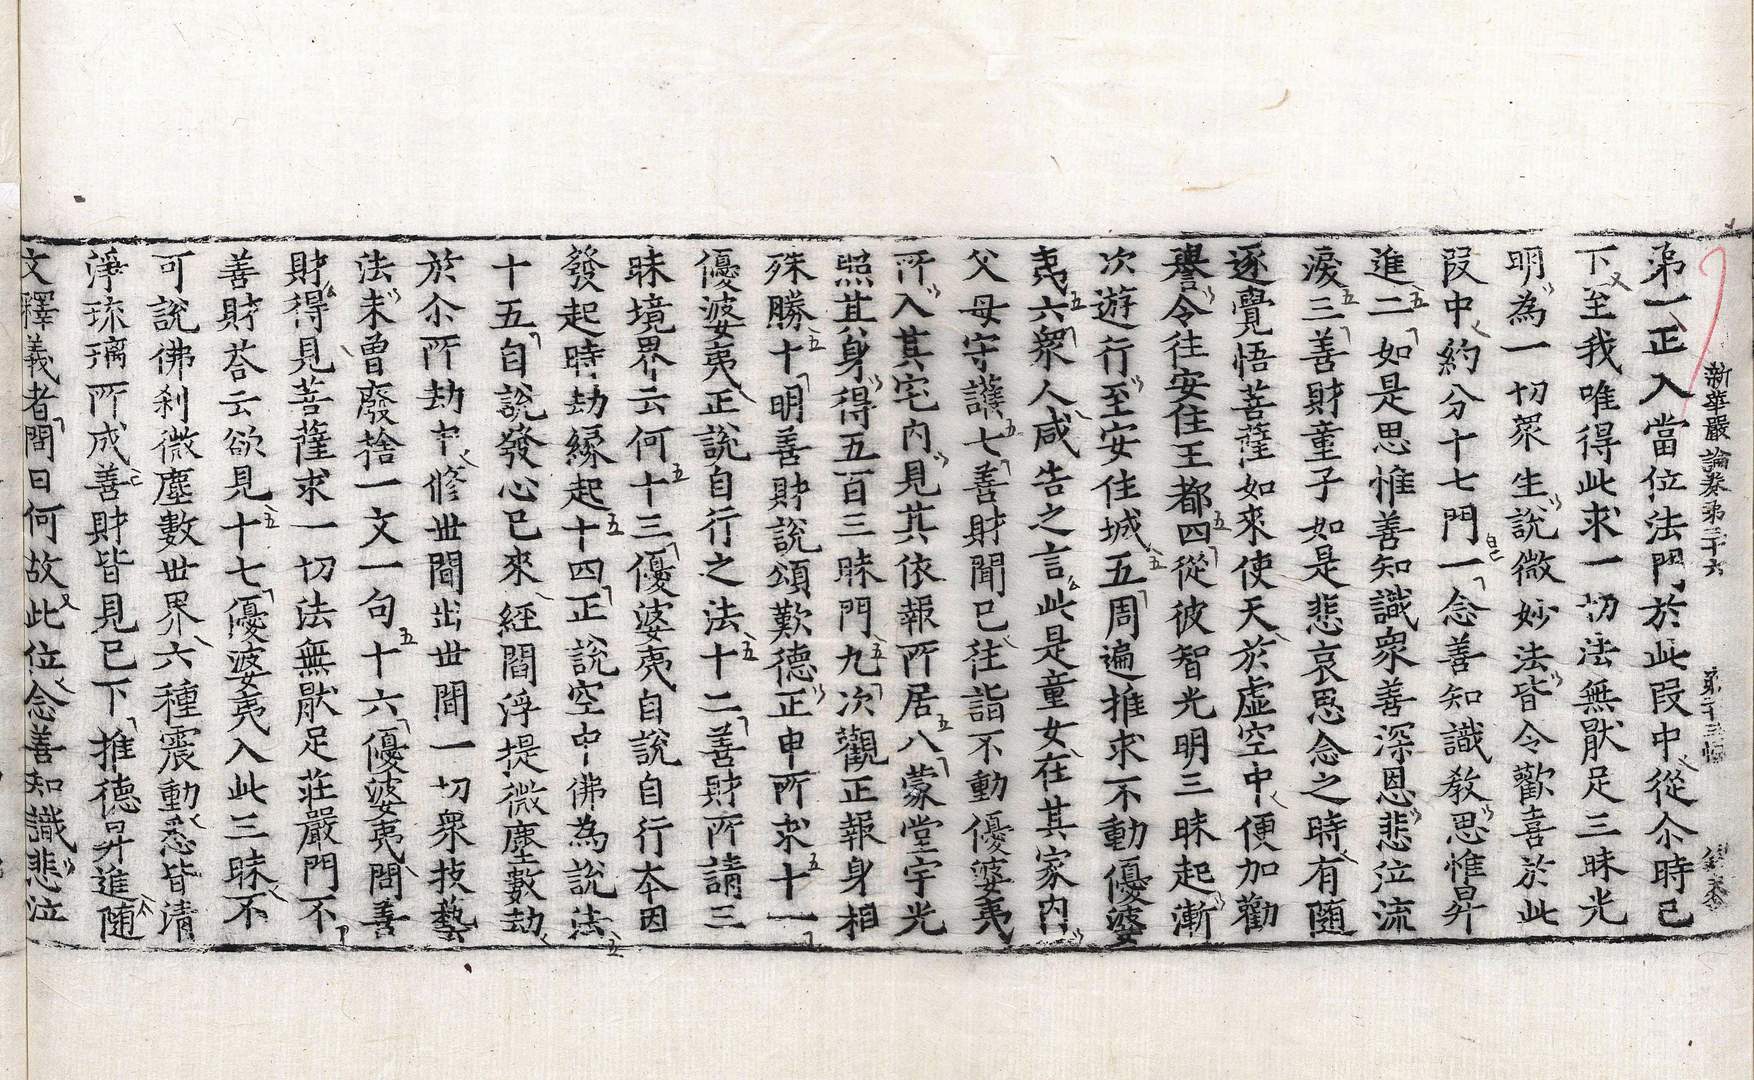 新華嚴論卷第三十六 第十三張
弟一正入當位法門於此叚中從尒時已
下至我唯得此求一切法無猒足三昧光
明為一切眾生說微妙法皆令歡喜於此
叚中約分十七門一念善知識教思惟昇
進二如是思惟善知識眾善深恩悲泣流
淚三善財童子如是悲哀思念之時有随
逐覺悟菩薩如來使天於虛空中便加勸
譽令往安住王都四從彼智光明三昧起漸
次遊行至安住城五周遍推求不動優婆
夷六眾人咸告之言此是童女在其家内
父母守護七善財聞已往詣不動優婆夷
所入其宅內見其依報所居八蒙堂宇光
照其身得五百三昧門九次觀正報身相
殊勝十明善財說頌歎德正申所求十一
優婆夷正說自行之法十二善財所請三
昧境界云何十三優婆夷自說自行本因
發起時劫緣起十四正說空中佛為說法
十五自說發心已來經閻浮提微塵數劫
於尒所劫中修世間出世間一切眾技藝
法未曾廢捨一文一句十六優婆夷問善
財得見菩薩求一切法無猒足莊嚴門不
善財荅云欲見十七優婆夷入此三昧不
可說佛刹微塵數世界六種震動悉皆清
淨琉璃所成善財皆見已下推德昇進随
文釋義者問曰何故此位念善知識悲泣